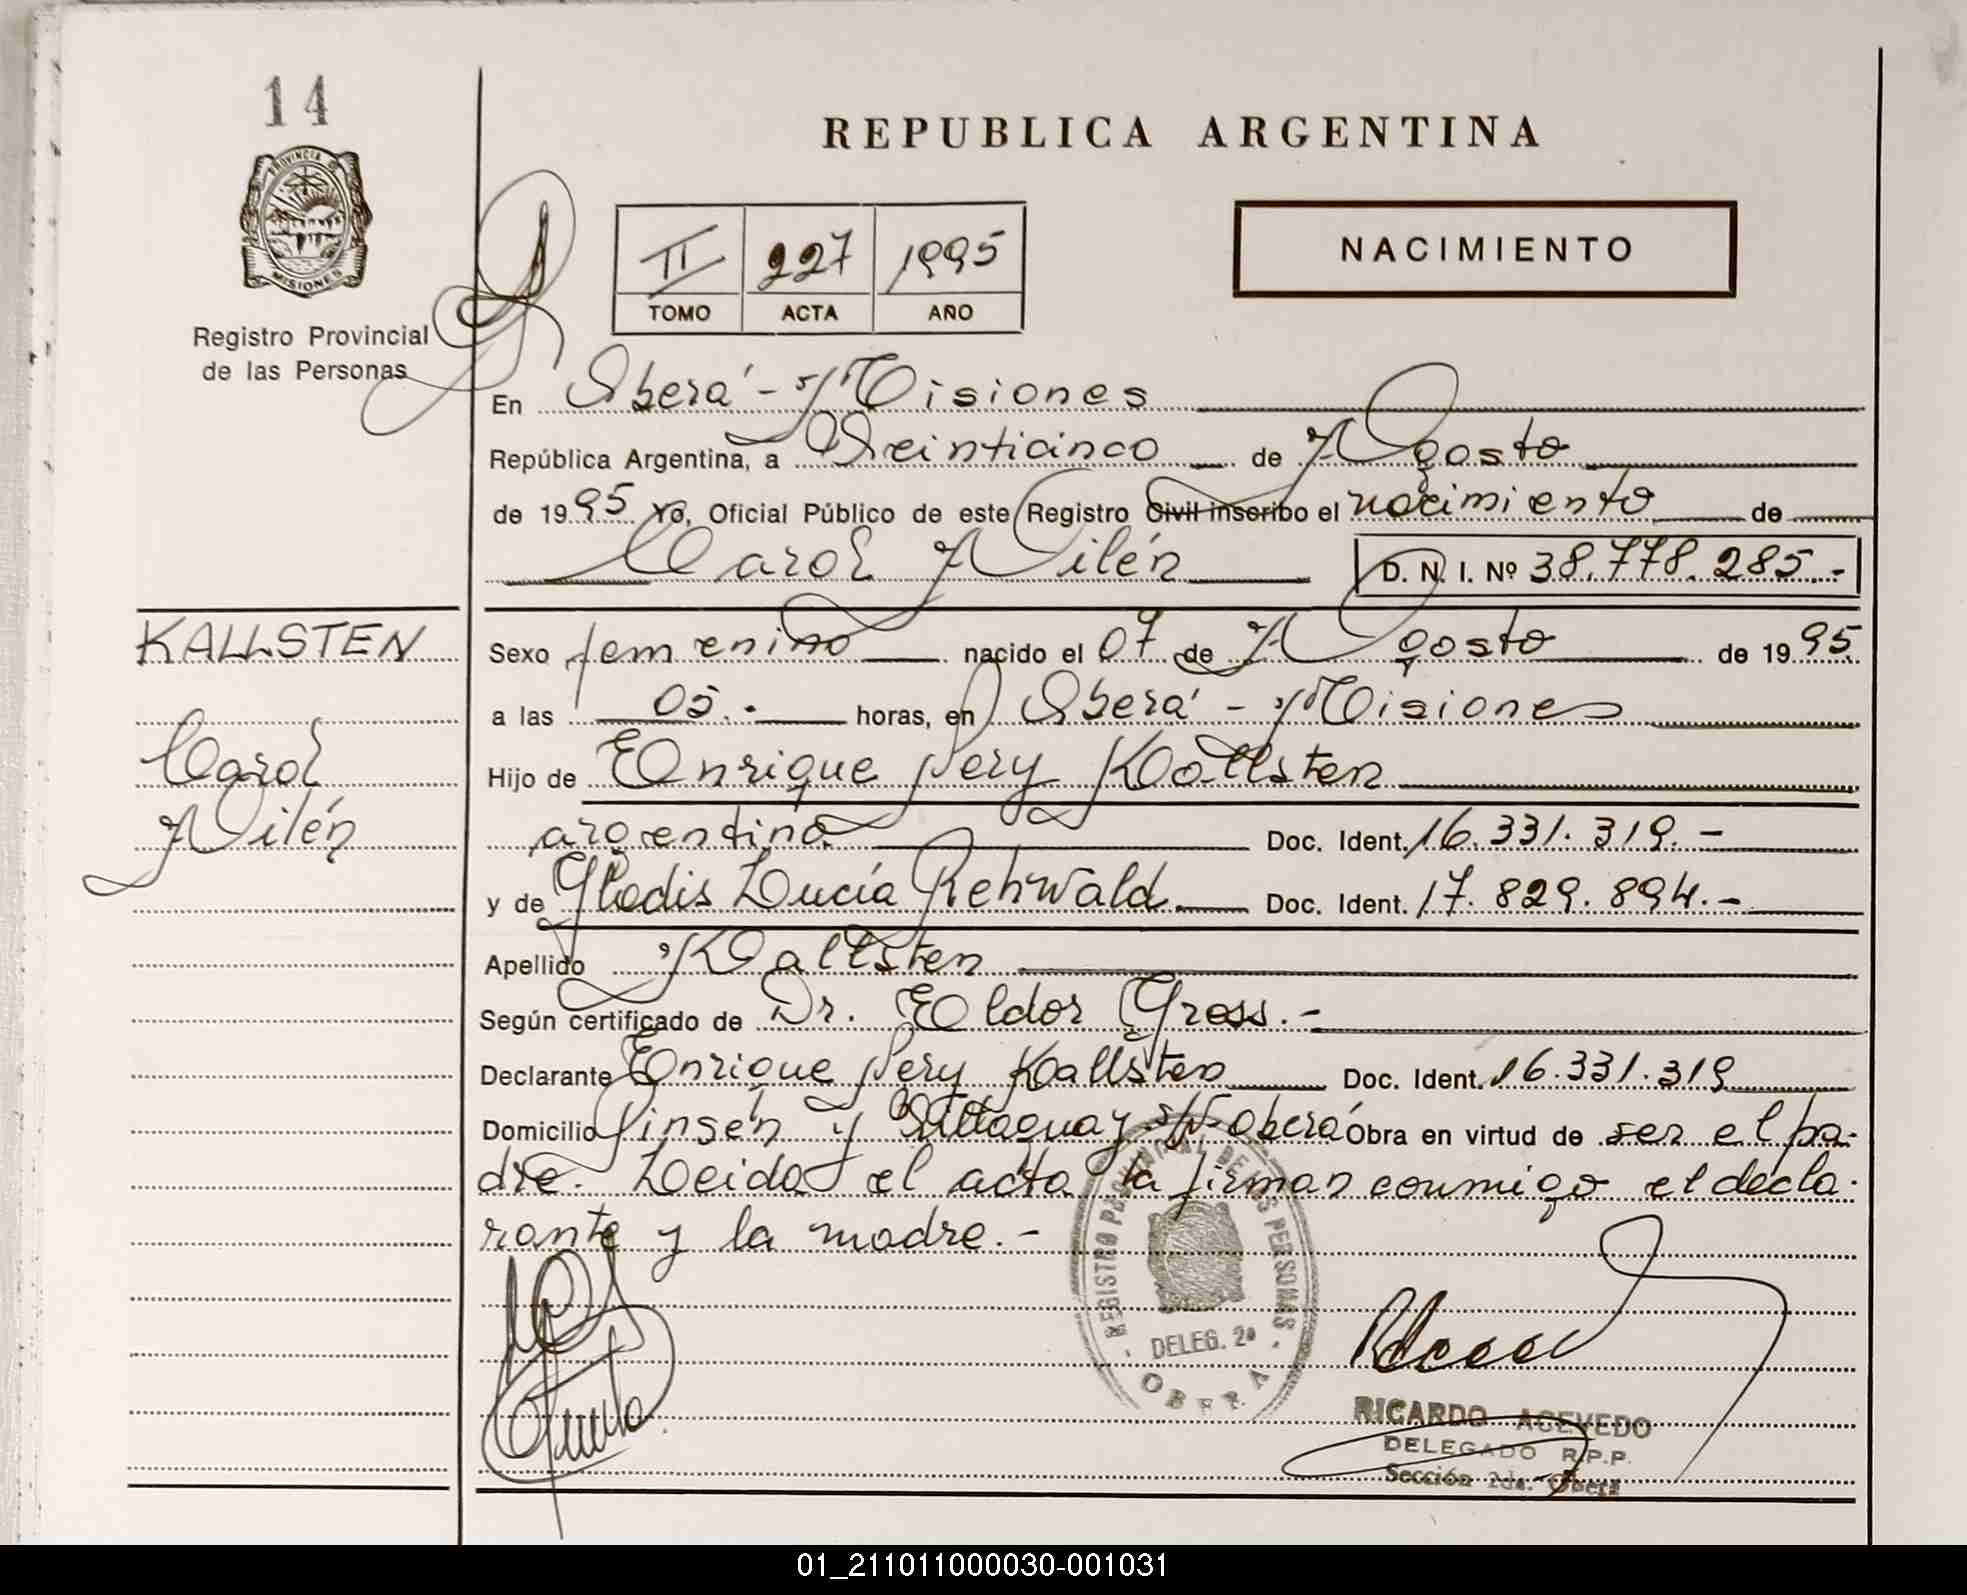 14
REPUBLICA ARGENTINA
PROVINCIA DE MISIONES
II 227 1995
TOMO ACTA AÑO
NACIMIENTO
Registro Provincial
de las Personas
En Oberá - Misiones
República Argentina, a Veinticinco de Agosto
de 1995 Yo, Oficial Público de este Registro Civil inscribo el nacimiento de
Carol Ailén D. N. I. Nº 38.778.285.-
KALLSTEN
Carol
Ailén
Sexo femenino nacido el 07 de Agosto de 1995
a las 05.- horas, en Oberá - Misiones
Hijo de Enrique Nery Kallsten
argentina Doc. Ident. 16.331.319.-
y de Glodis Lucía Rehwald Doc. Ident. 17.829.894.-
Apellido Kallsten
Según certificado de Dr. Eldor Gross.-
Declarante Enrique Nery Kallsten Doc. Ident. 16.331.319
Domicilio y Oberá Obra en virtud de ser el pa-
dre. Leida el acta la firman conmigo el decla-
rante y la madre.-
REGISTRO PROVINCIAL DE LAS PERSONAS
DELEG. 2ª
OBERA
RICARDO ACEVEDO
DELEGADO R.P.P.
Sección 2da. Oberá
01_211011000030-001031